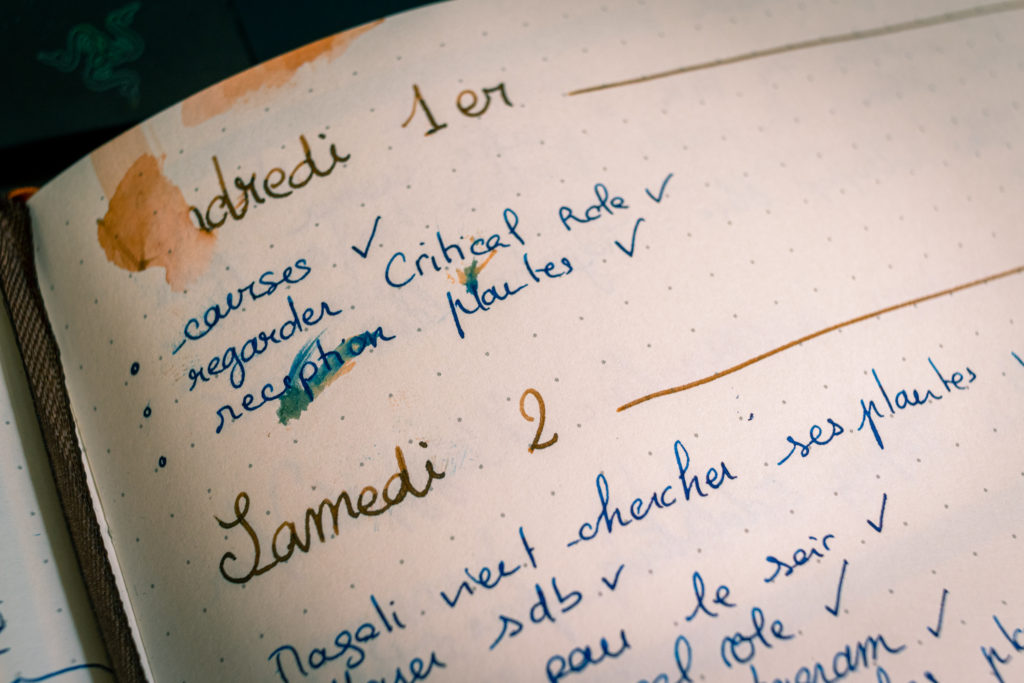 ndredi 1er
courses ✓
regarder Critical Role ✓
reception plantes ✓
Samedi 2
Magali vient chercher ses plantes
sdb ✓
le soir ✓
role ✓